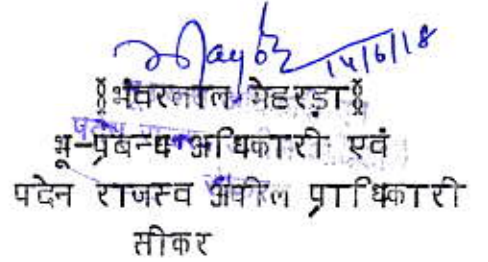 14/6/18
§भंवरलाल मेहरड़ा§
भू-प्रबन्ध अधिकारी एवं
पदेन राजस्व अपील प्राधिकारी
सीकर